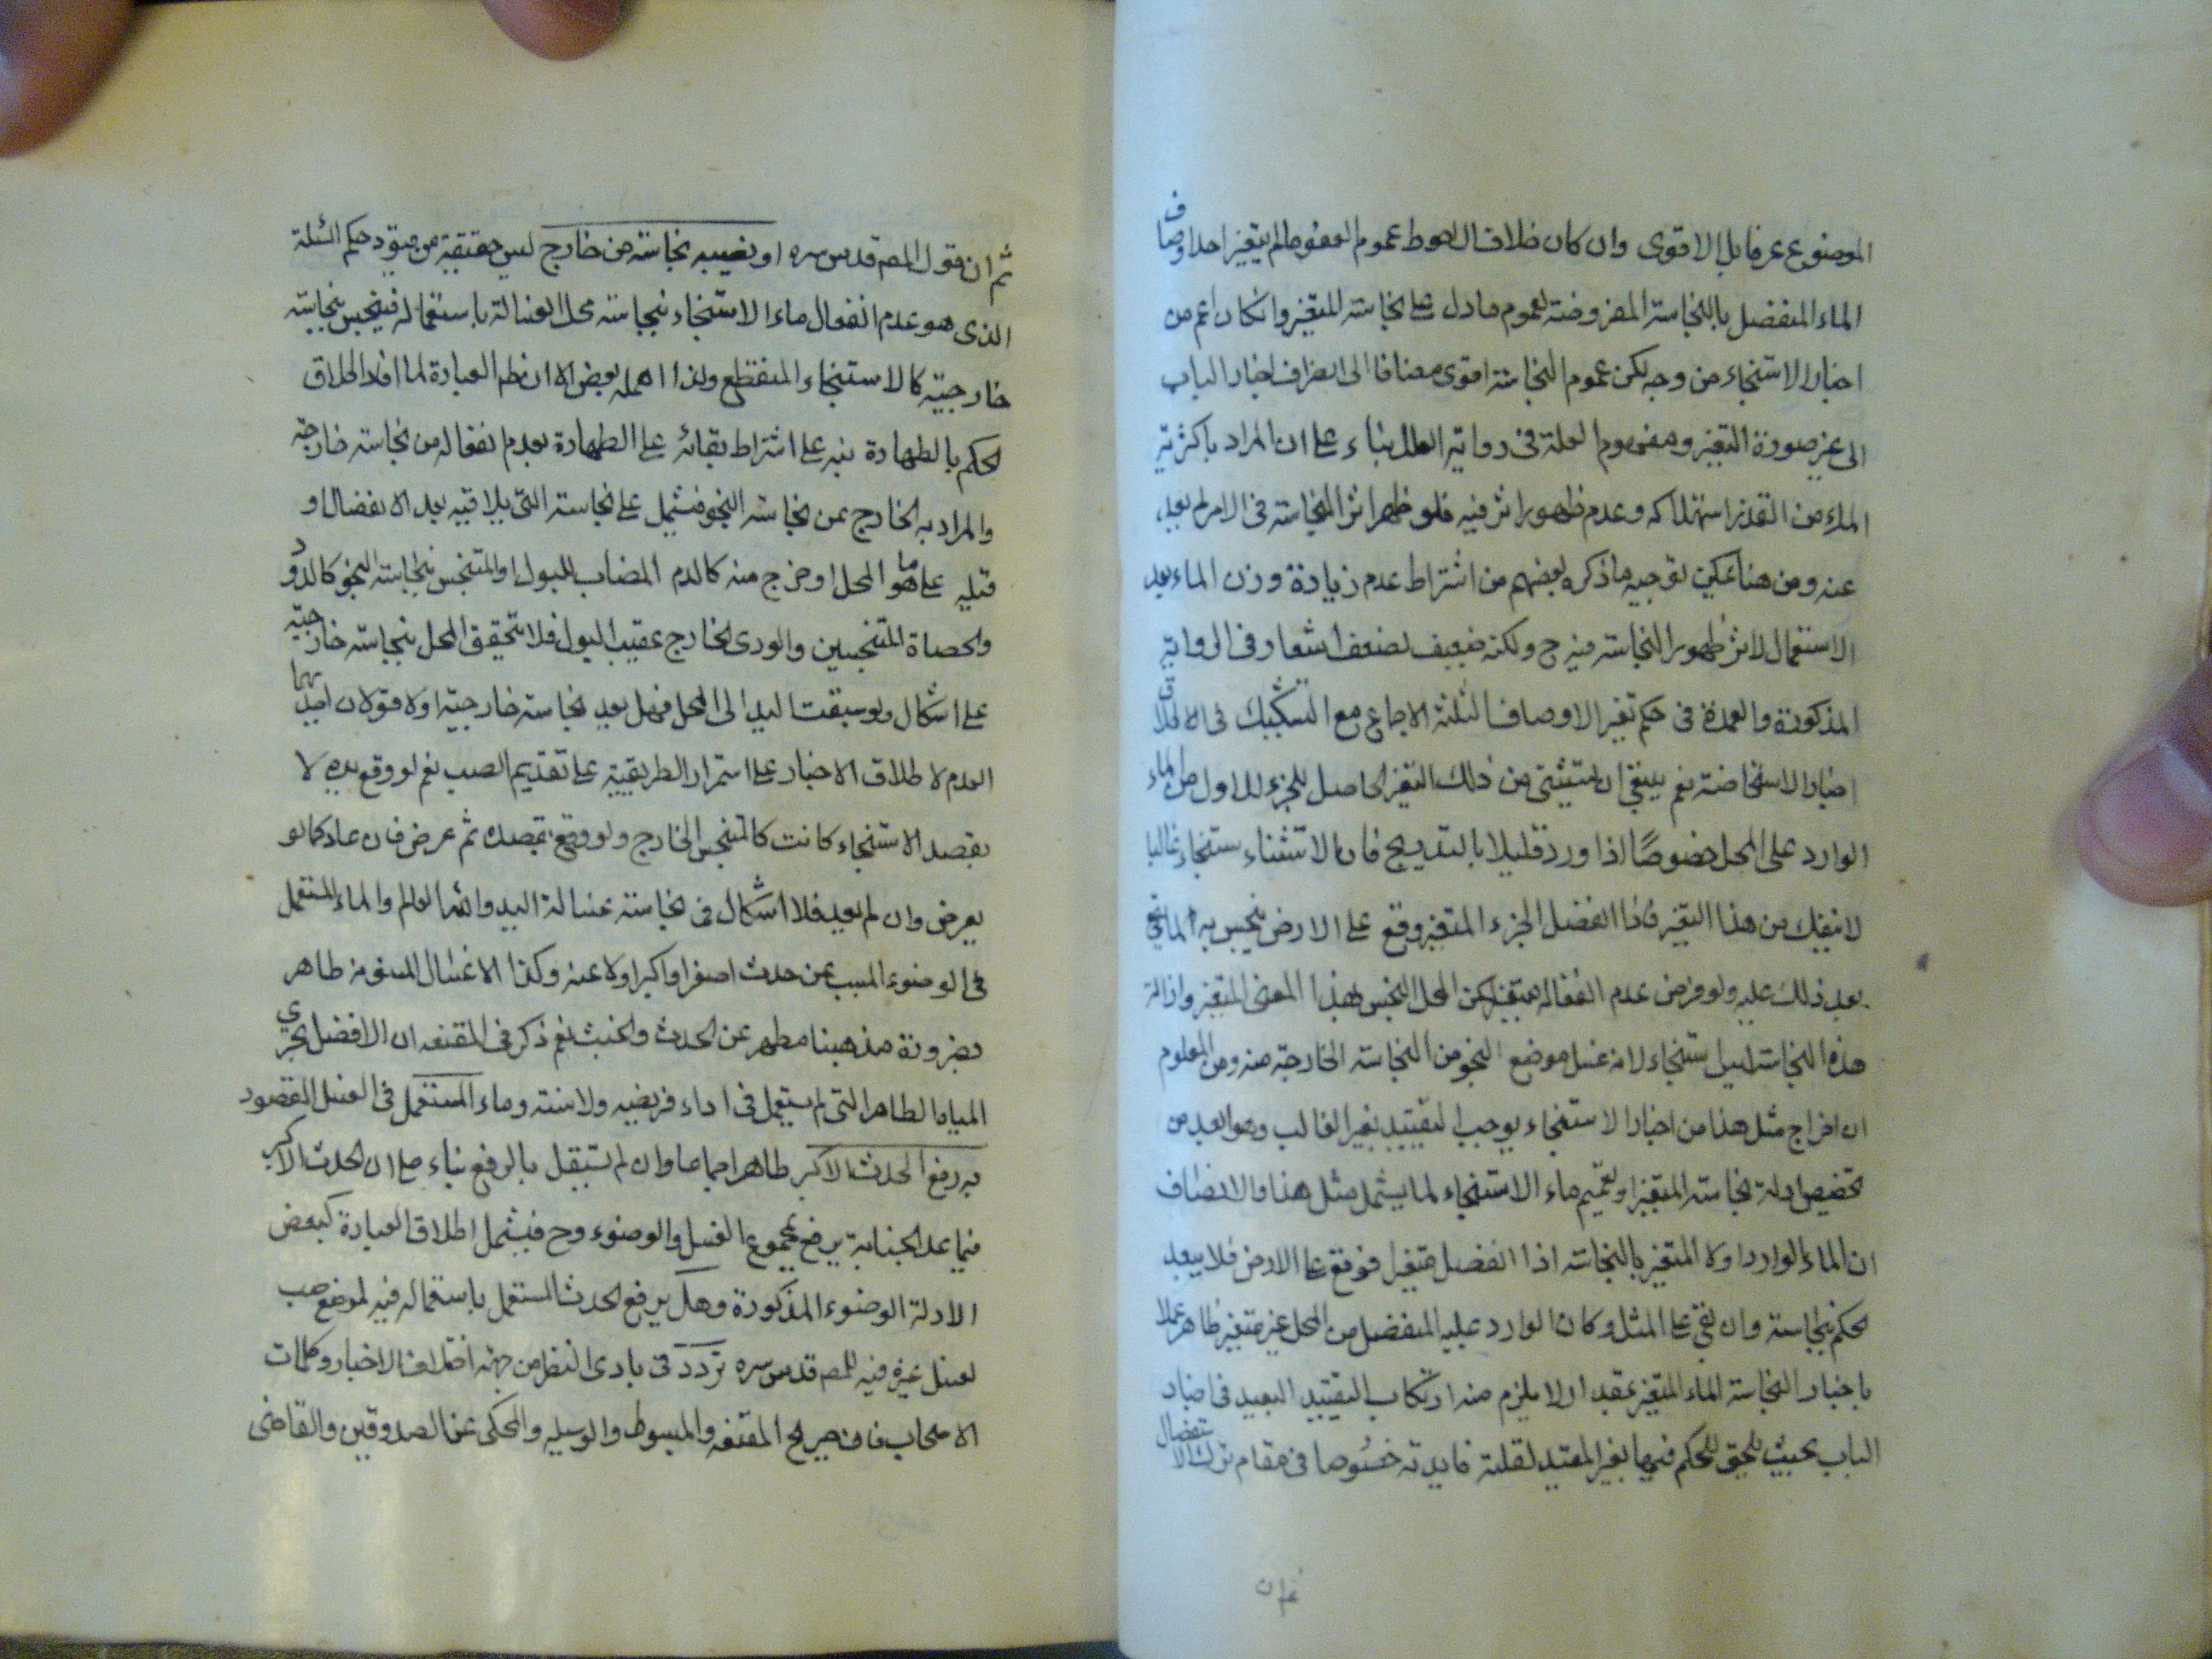 الموضوع عرفا بل الاقوى وان كان خلافا لل عموم العفو ما لم يتغير احد اوصاف
الماء المنفصل بالنجاسة المفروضة لعموم ما دل على نجاسة المتغير وان كان اعم من
اخبار الاستنجاء من وجه لكن عموم النجاسة اقوى مضافا الى انصراف اخبار الباب
الى غير صورة التغير ومفهوم العلة فى رواية العلل بناء على ان المراد باكثرية
الماء من القذر استهلاكه وعدم ظهور اثر فيه فلو ظهر اثر النجاسة فى الامر لم يعد
عنه ومن هنا يمكن توجيه ما ذكره بعضهم من اشتراط عدم زيادة وزن الماء بعد
الاستعمال لاثر ظهور النجاسة فيه ح ولكنه ضعيف لضعف اشعار فى الرواية
المذكورة والعمدة فى حكم تغير الاوصاف الثلثة الاجماع مع التشكيك فى الاطلاق
اخبار الاستفاضة نعم ينبغى ان يستثنى من ذلك التغير الحاصل للجزء الاول من الماء
الوارد على المحل خصوصًا اذا ورد قليلا بالتدريج فان الاستثناء ستنجاء غالبا
لا ينفك من هذا التغير فاذا انفصل الجزء المتغير وقع على الارض ينجس به الماء
بعد ذلك عليه ولو فرض عدم انفعاله متغير لكن المحل النجس بهذا المعنى المتغير وازالة
هذه النجاسة ليس ستنجاء لانه غسل موضع النجو من النجاسة الخارجة منه ومن المعلوم
ان اخراج مثل هذا من اخبار الاستنجاء يوجب التقييد بغير الغالب وهو ابعد من
تخصيص ادلة نجاسة المتغير او تعميم ماء الاستنجاء لما يشمل مثل هذا والانصاف
ان الماء الوارد اولا المتغير بالنجاسة اذا انفصل متغيرا فوقع على الارض فلا يبعد
الحكم بنجاسة وان بقى على المثل وكان الوارد عليه المنفصل من المحل غير متغير طاهر عملا
باخبار النجاسة الماء المتغير بقدر لا يلزم منه ارتكاب التقييد البعيد فى اخبار
الباب بحيث يلحق الحكم فيها بغير المقيد لقلة فايدته خصوصا فى مقام ترك الاستفصال
ثم ان
ثم ان قول المص قدس سره او تصيبه نجاسة من خارج ليس حقيقة من قيود حكم المسئلة
الذى هو عدم انفعال ماء الاستنجاء بنجاسة محل الغسالة باستعماله فينجس بنجاسة
خارجية كالاستنجاء المنقطع ولذا اهمله بعض الا ان نظم العبارة لما افاد اطلاق
الحكم بالطهارة نبه على اشتراط بقائه على الطهارة بعدم انفعاله من نجاسة خارجة
والمراد به الخارج عن نجاسة النجو فيشمل على نجاسة التى يلاقيه بعد الانفصال او
قبله على ما هو المحل او خرج منه كالدم المصاحب للبول او المتنجس بنجاسة النجو كالدود
والحصاة المتنجسين والودى الخارج عقيب البول فلا يتحقق المحل بنجاسة خارجية
على اشكال ولو سبقت اليد الى المحل فهل يعد نجاسة خارجية اولا قولان احدهما
العدم لاطلاق الاخبار على استمرار الطريقية على تقديم الصب نعم لو وقع يده لا
بقصد الاستنجاء كانت كالمتنجس الخارج ولو وقع بقصده ثم عرض فان عاد كما لو
يعرض وان لم يعد فلا اشكال فى نجاسة غسالة اليد والله العالم والماء المستعمل
فى الوضوء المسبب عن حدث اصغر او اكبر اولا عنه وكذا الاغسال المسنونة طاهر
بضرورة مذهبنا مطهر عن الحدث والخبث نعم ذكر فى المقنعه ان الافضل تحرى
المياه الطاهرة التى لم يستعمل فى اداء فريضه ولا سنته وماء المستعمل فى الغسل المقصود
به رفع الحدث الاكبر طاهر اجماعا وان لم يستقل بالرفع بناء على ان الحدث الاكبر
فيما عدا الجنابة يرفع بمجموع الغسل والوضوء وح فيشمل اطلاق العبارة كبعض
الادلة الوضوء المذكورة وهل يرفع الحدث المستعمل باستعماله فيه لموضع صب
لغسل غيره فيه للمص قدس سره تردد فى بادى النظر من جهة اختلاف الاخبار وكلمات
الاصحاب فان صريح المقنعه والمبسوط والوسيله والمحكى عن الصدوقين والقاضى